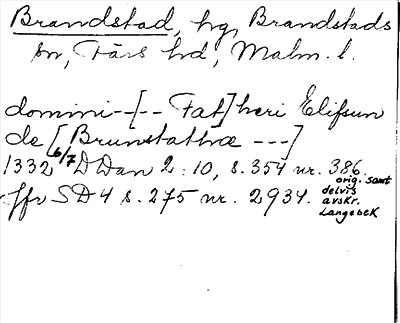 Brandstad, hg, Brandstads
sn, Färs hd, Malm. l.
domini--[-- Fat]heri Elifsun
de [Brunstathæ ---]
1332 6/7 DDan 2:10, s. 354 nr. 386.
orig. samt
delvis
avskr.
Langebek
Jfr SD 4 s. 275 nr. 2934.